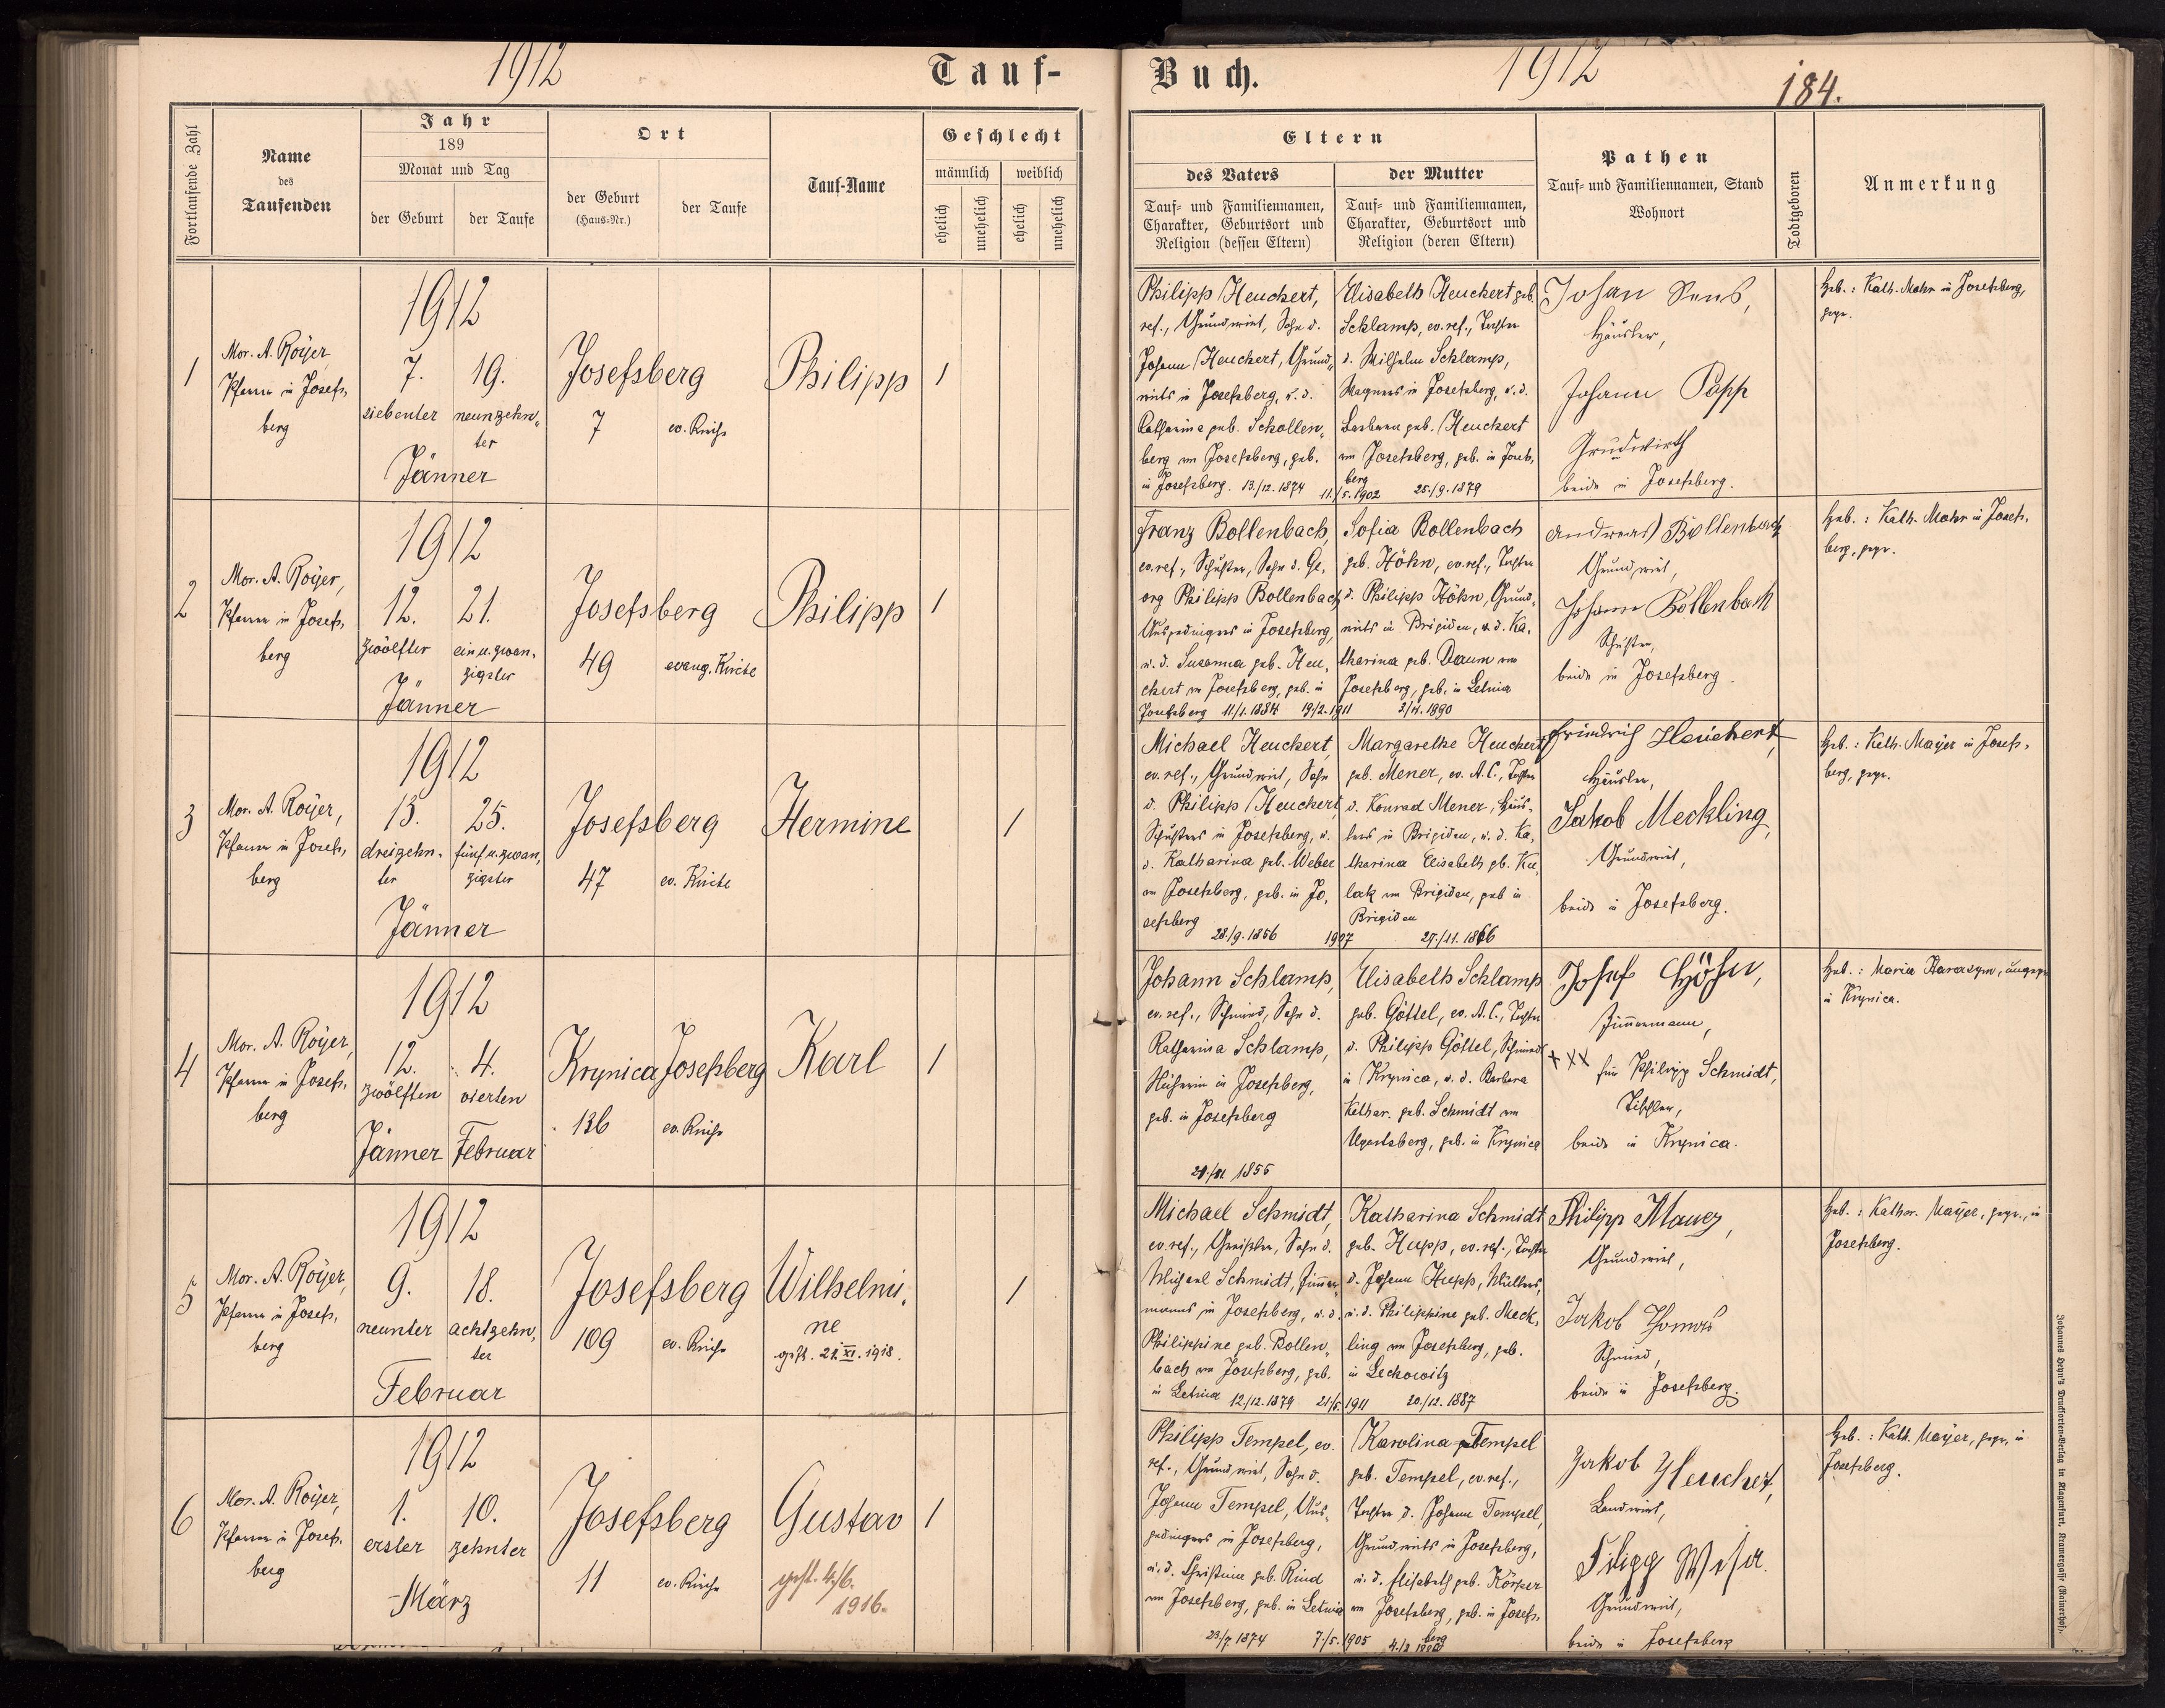 1912
Tauf-
Buch.
1912
184.
Fortlaufende Zahl
Name
des
Taufenden
Jahr
189
Monat und Tag
der Geburt
der Taufe
Ort
der Geburt
(Haus-Nr.)
der Taufe
Tauf-Name
Geschlecht
männlich
weiblich
ehelich
unehelich
ehelich
unehelich
Eltern
des Vaters
Tauf- und Familiennamen,
Charakter, Geburtsort und
Religion (dessen Eltern)
der Mutter
Tauf- und Familiennamen,
Charakter, Geburtsort und
Religion (deren Eltern)
Pathen
Tauf- und Familiennamen, Stand
Wohnort
Todtgeboren
Anmerkung
1
Mor. A. Royer
Pfarrer in Josefs-
berg
1912
7.
siebenter
19.
neunzehn-
ter
Jänner
Josefsberg
7
ev. Kirche
Philipp
1
Philipp Heuchert,
ref., Grundwirt, Sohn d.
Johann Heuchert, Grund-
wirts in Josefsberg, u. d.
Katharina geb. Schollen-
berg von Josefsberg, geb.
in Josefsberg. 13./12. 1874
11./5. 1902
Elisabeth Heuchert geb.
Schlamp, ev. ref., Tochter
d. Wilhelm Schlamp,
Wagners in Josefsberg, u. d.
Barbara geb. Heuchert
von Josefsberg, geb. in Josefs-
berg
25./9. 1879
Johan
Häusler,
Johann Papp
Grudwirth
beide in Josefsberg.
Heb.: Kath. Mohr in Josefsberg,
gepr.
2
Mor. A. Royer,
Pfarrer in Josefs-
berg
1912
12.
zwölfter
21.
ein u. zwan-
zigster
Jänner
Josefsberg
49
evang. Kirche
Philipp
1
Franz Bollenbach,
ev. ref., Schuster, Sohn d. Ge-
org Philipp Bollenbach
Ausgedingers in Josefsberg,
u. d. Susanna geb. Heu-
chert von Josefsberg, geb. in
Josefsberg 11/1. 1884 19/2. 1911
Sofia Bollenbach
geb. Höhn, ev. ref., Tochter
d. Philipp Höhn, Grund-
wirts in Brigidau, u. d. Ka-
tharina geb. Daum von
Josefsberg, geb. in Letnia
3/4. 1890
Andreas Bollenbach
Grundwirt,
Johann Bollenbach
Schuster,
beide in Josefsberg.
Heb.: Kath. Mohr in Josefs-
berg, gepr.
3
Mor. A. Royer,
Pfarrer in Josefs-
berg
1912
13.
dreizehn-
ter
25.
fünf u. zwan-
zigster
Jänner
Josefsberg
47
ev. Kirche
Hermine
1
Michael Heuchert,
ev. ref., Grundwirt, Sohn
d. Philipp Heuchert,
Schusters in Josefsberg, u.
d. Katharina geb. Weber
von Josefsberg, geb. in Jo-
sefsberg
28./9. 1866
1907
Margarethe Heuchert
geb. Mener, ev. A. C., Tochter
d. Konrad Mener, Häus-
lers in Brigidau, u. d. Ka-
tharina Elisabeth gb. Ku-
lak von Brigidau, geb in
Brigidau
Friedrich Heuchert,
Häusler,
Jakob Meckling,
Grundwirt,
beide in Josefsberg.
Heb.: Kath. Mayer in Josefs-
berg, gepr.
4
Mor. A. Royer,
Pfarrer in Josefs-
berg
1912
12.
zwölften
4.
vierten
Jänner
Februar
Krynica
136
Josefsberg
ev. Kirche
Karl
1
Johann Schlamp,
ev. ref., Schmied, Sohn d.
Katharina Schlamp,
in Josefsberg,
geb. in Josefsberg
Elisabeth Schlamp
geb. Göttel, ev. A. C., Tochter
d. Philipp Göttel, Schmied
in Krynica, u. d. Barbara
Kathar. geb. Schmidt von
Ugartsberg, geb. in Krynica
Josef Höhn,
Zimmermann,
XXX für Philipp Schmidt,
Tischler,
beide in Krynica.
Heb.: Maria Harasym, ungepr.
in Krynica.
5
Mor. A. Royer,
Pfarrer in Josefs-
berg
1912
9.
neunter
18.
achtzehn-
ter
Februar
Josefsberg
109
ev. Kirche
Wilhelmi-
ne
gest. 21. XI. 1918.
1
Michael Schmidt,
ev. ref., Greißler, Sohn d.
Michael Schmidt, Zimmer-
manns in Josefsberg, u. d.
Philippine geb. Bollen-
bach von Josefsberg, geb.
in Letnia 12./12. 1879
21/5. 1911
Katharina Schmidt
geb. Hupp, ev. ref., Tochter
d. Johann Hupp, Müllers,
u. d. Philippine geb. Meck-
ling von Josefsberg, geb.
in Leckowitz
20./12. 1887
Philipp Manz,
Grundwirt,
Jakob Thomas
Schmied,
beide in Josefsberg.
Heb.: Kathar. Mayer, gepr., in
Josefsberg.
6
Mor. A. Royer,
Pfarrer in Josefs-
berg
1912
1.
erster
10.
zehnter
März
Josefsberg
11
ev. Kirche
Gustav
gest. 4./6.
1916.
1
Philipp Tempel, ev.
ref., Grundwirt, Sohn d.
Johann Tempel, Aus-
gedingers in Josefsberg,
u. d. Christine geb. Rind
von Josefsberg, geb. in Letnia
23/7 1874
7./5. 1905
Karolina Tempel
geb. Tempel, ev. ref.,
Tochter d. Johann Tempel,
Grundwirts in Josefsberg,
u. d. Elisabeth geb. Körper
von Josefsberg, geb. in Josefs-
berg
Jakob Heuchert,
Landwirt,
Filipp
Grundwirt,
beide in Josefsberg
Heb.: Kath. Mayer, gepr. in
Josefsberg.
Johannes Heyn's Drucksorten-Verlag in Klagenfurt, Kramergasse (Rainerhof).